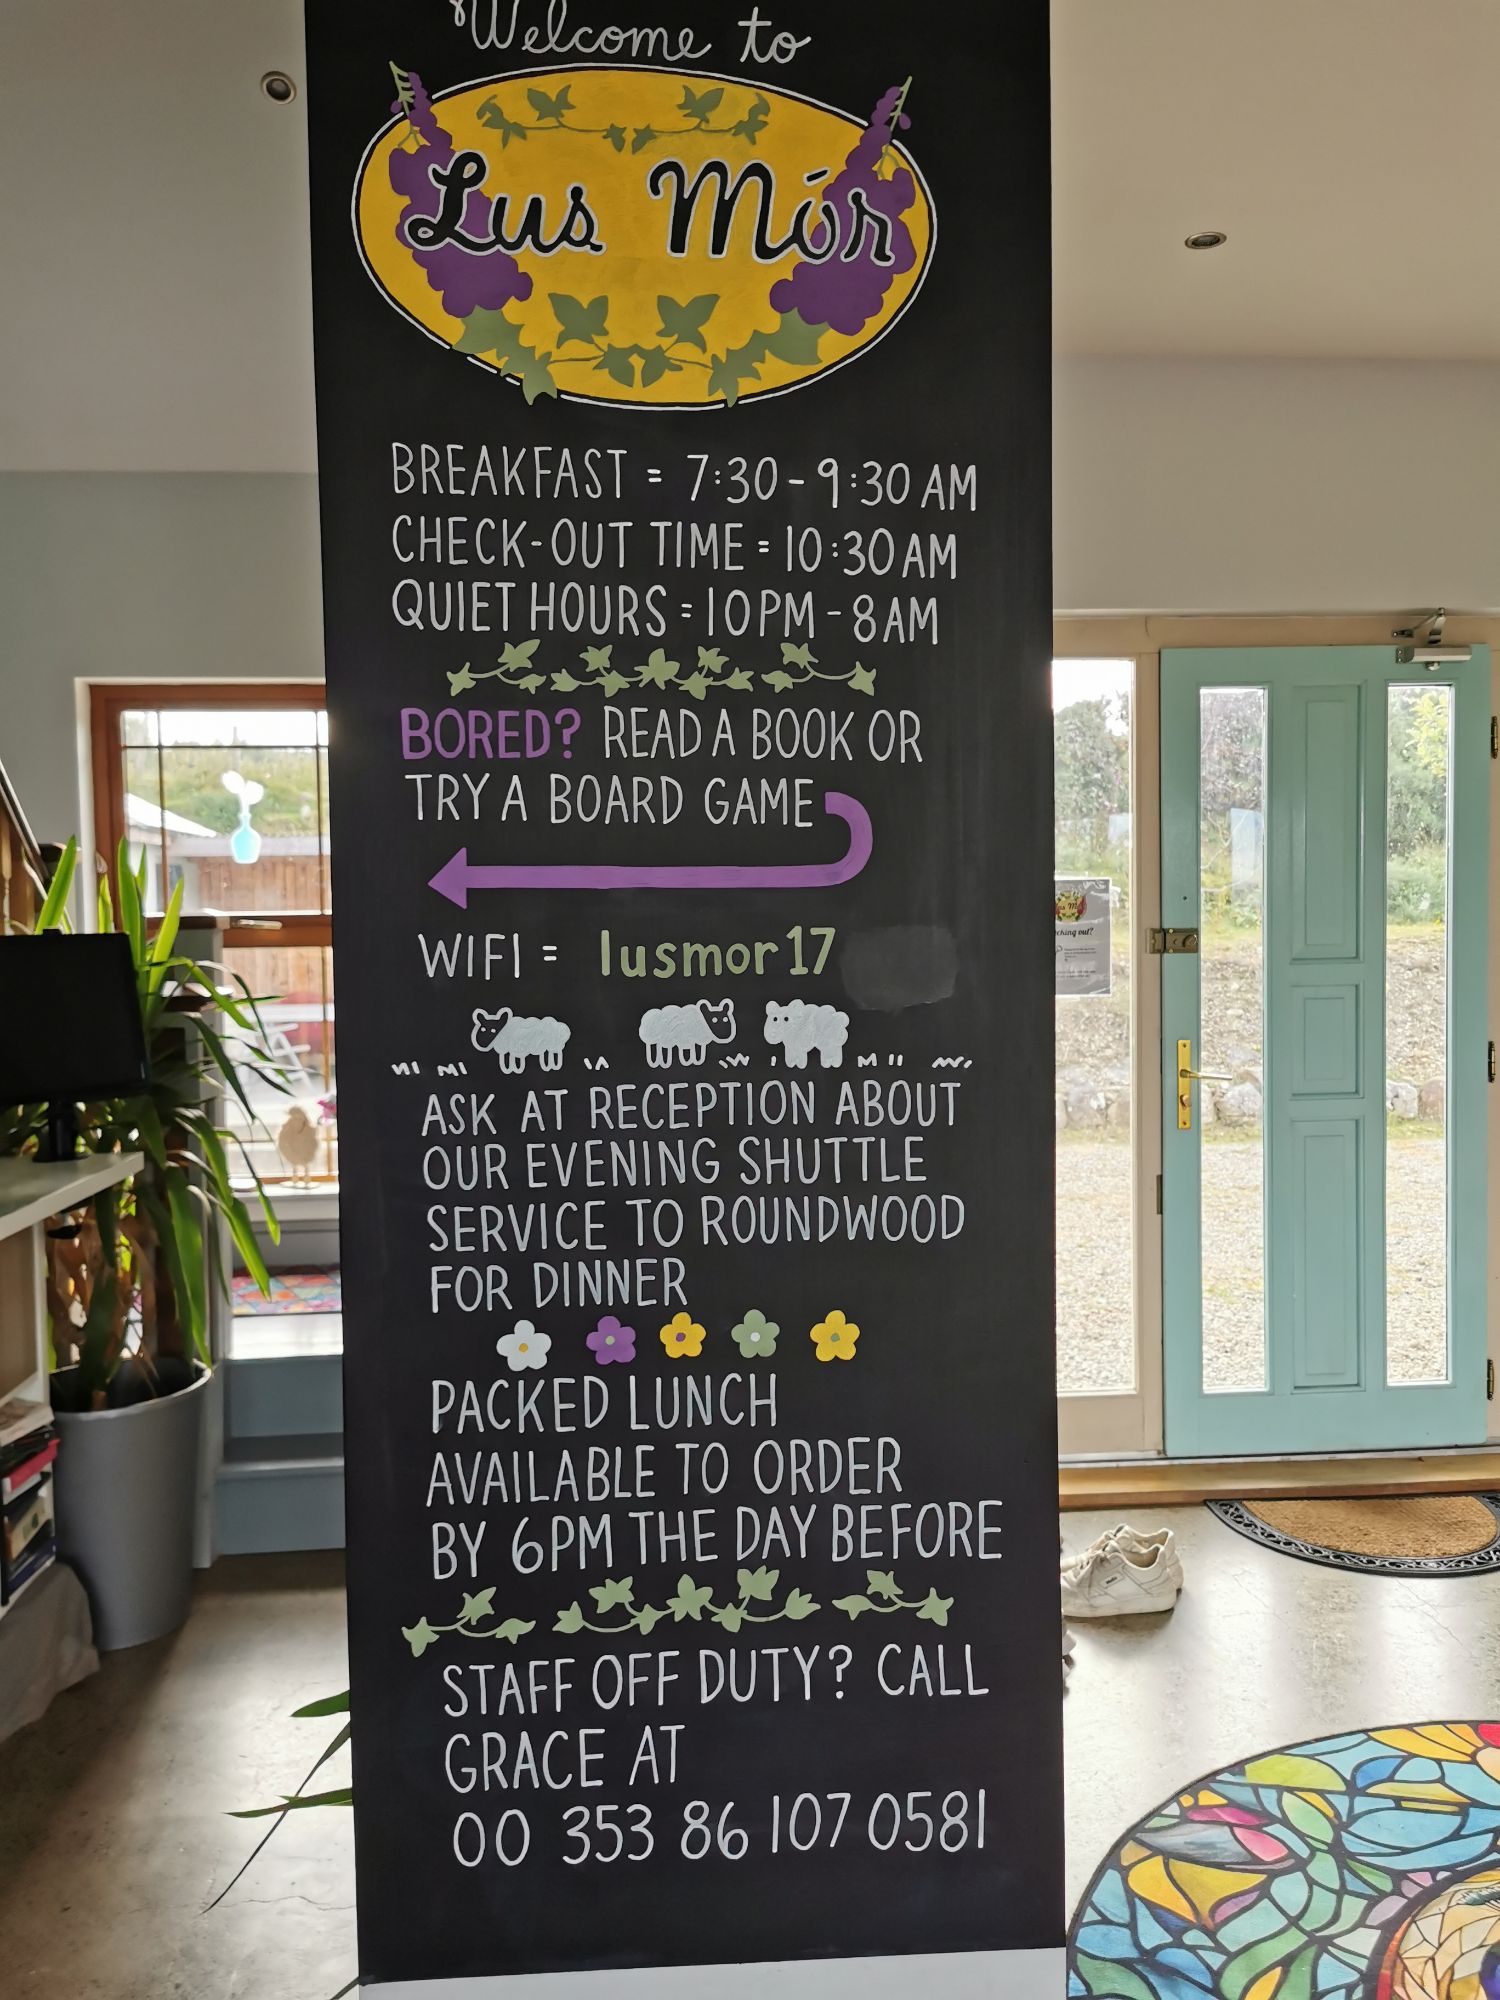 Welcome to
Lus Mór
BREAKFAST = 7:30-9:30 AM
CHECK-OUT TIME = 10:30 AM
QUIET HOURS = 10PM-8AM
BORED? READ A BOOK OR
TRY A BOARD GAME
WIFI = lusmor17
ASK AT RECEPTION ABOUT
OUR EVENING SHUTTLE
SERVICE TO ROUNDWOOD
FOR DINNER
PACKED LUNCH
AVAILABLE TO ORDER
BY 6PM THE DAY BEFORE
STAFF OFF DUTY? CALL
GRACE AT
00 353 86 107 0581
out?